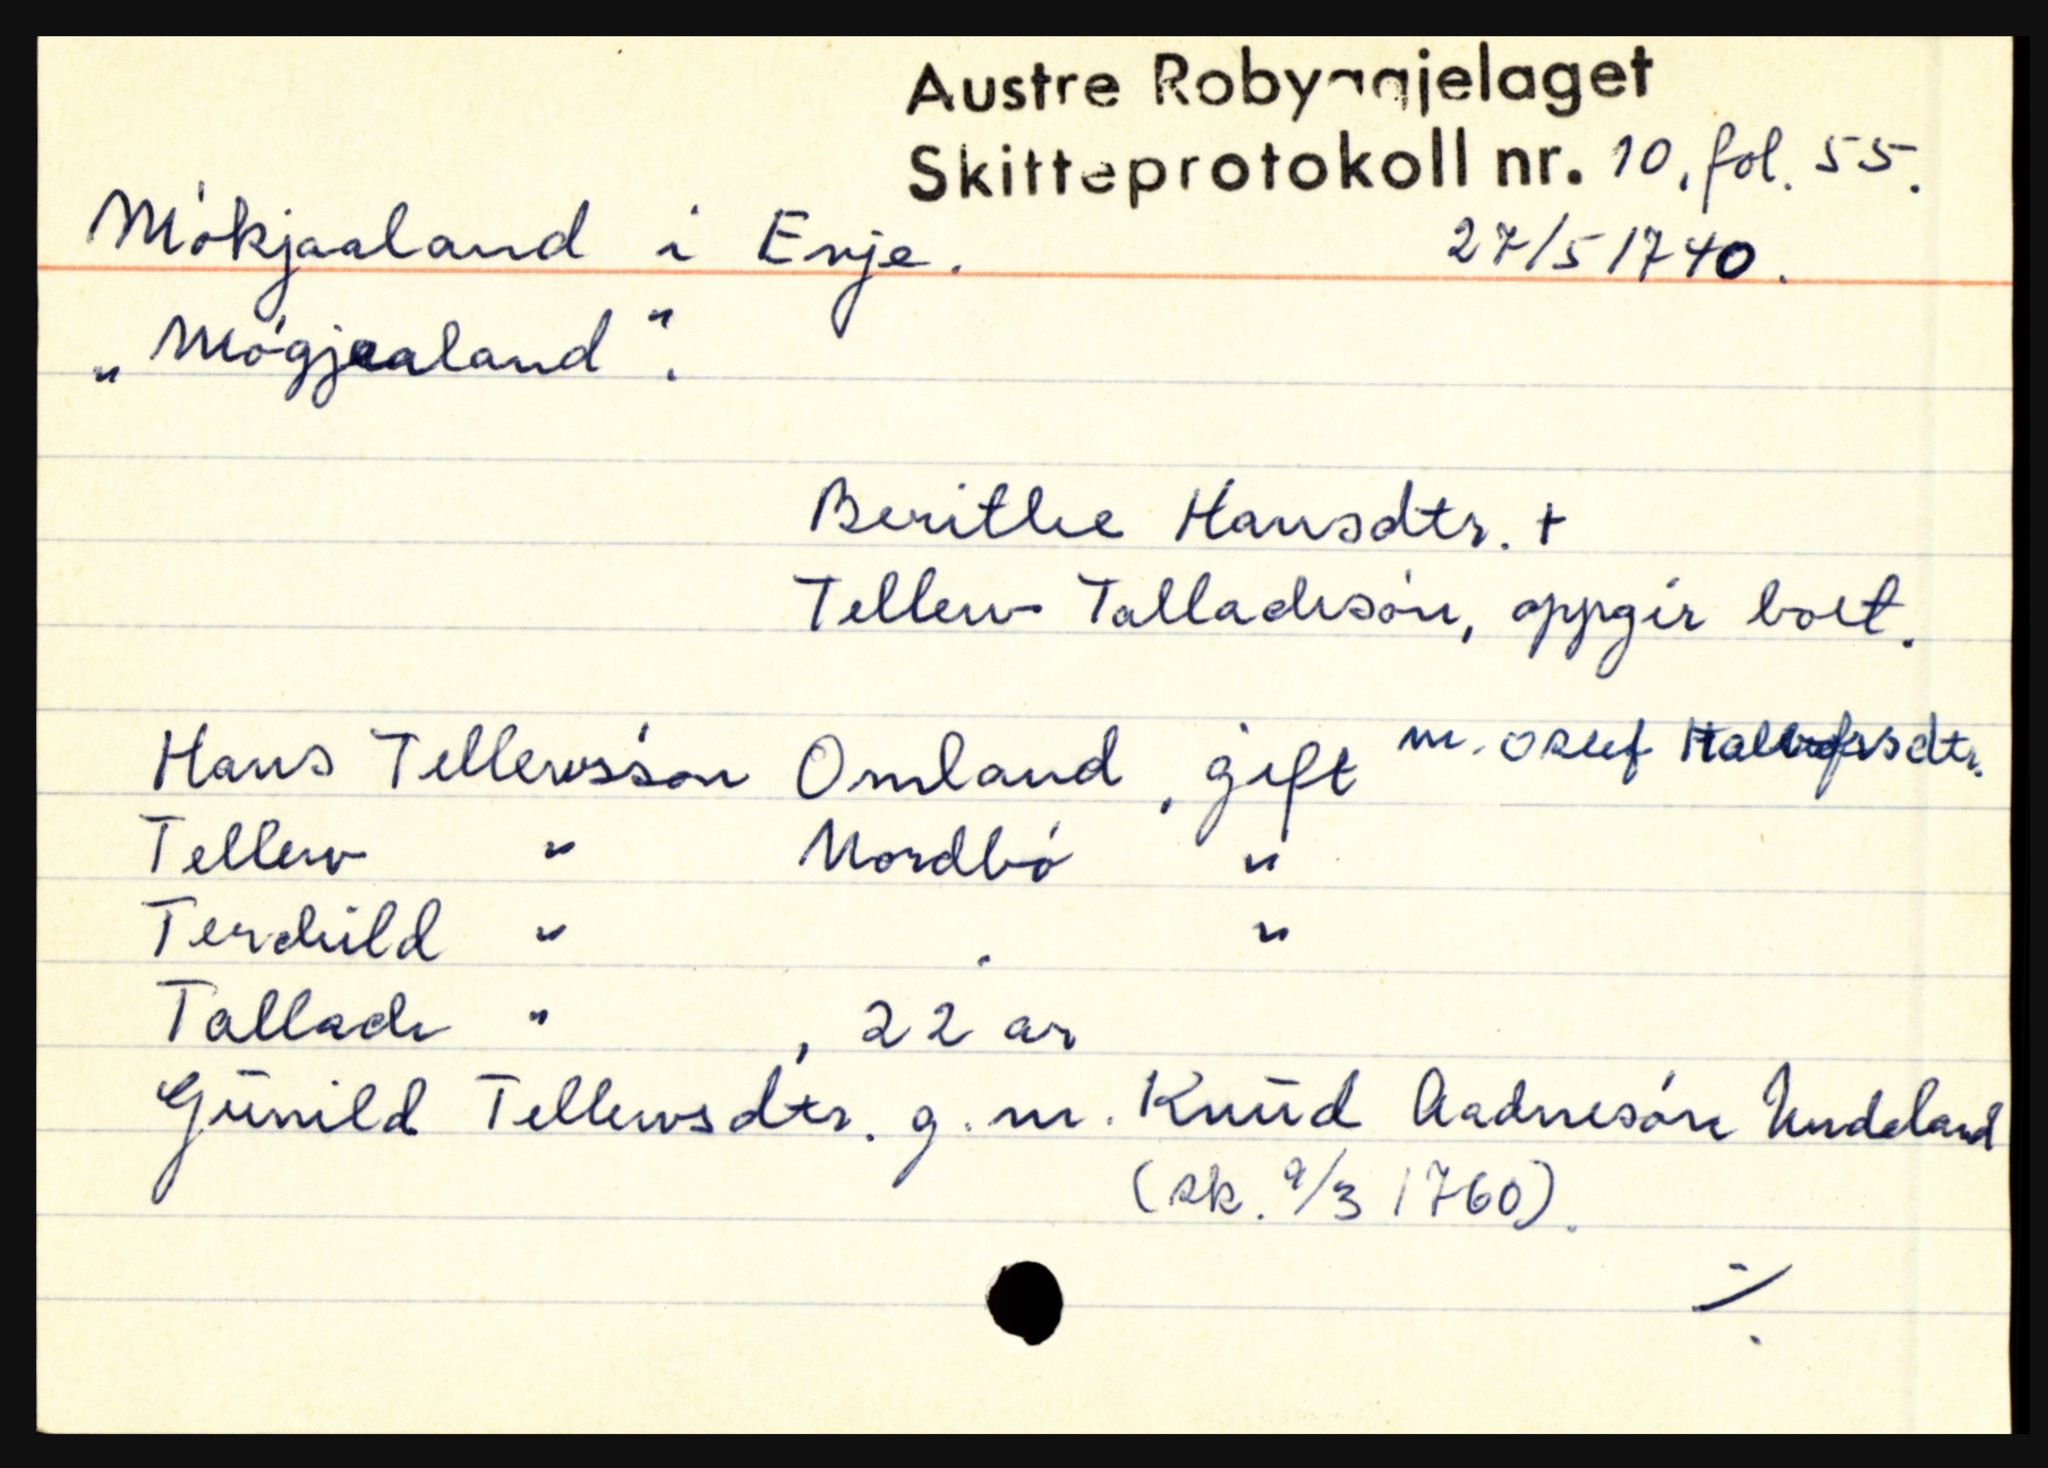 Austre Robyggjelaget
Skifteprotokoll nr. 10, fol. 55.
Mókjaaland i Evje. 27/5 1740.
„Mógjaaland".
Berithe Hansdtr. +
Tellev Talladsón, oppgir boet.
Hans Tellevsson Omland, gift m. Osef Hallvorsdtr.
Tellev " Nordbó "
Terchild " . "
Tallach ", 22 år
Gúnild Tellevsdtr. g. m. Knúd Aadnesón Undeland
(sk. 9/3 1760).
./.